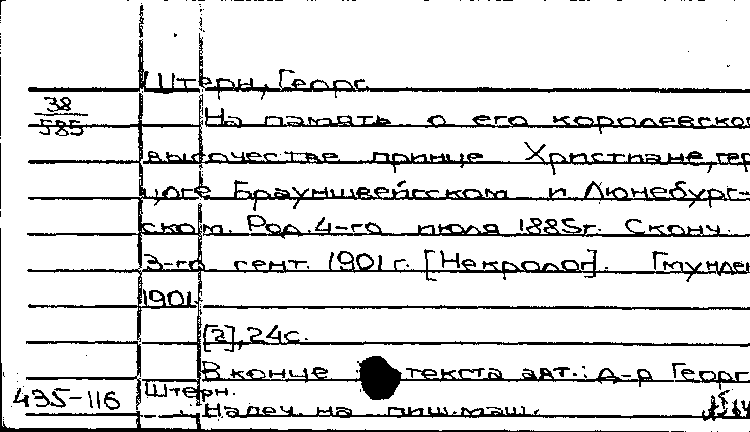 Штерн, Георг
38
585
На память о его королевском
высочестве принце Христиане, гер
цоге Брауншвейгском и Люнебург-
ском. Род. 4-го июля 1885г. Сконч.
3-го сент. 1901 г. [Некролог]. Гмунден
1901
[2], 24с.
В конце текста авт.: д-р Георг
Штерн.
435-116
Напеч. на пиш. маш.